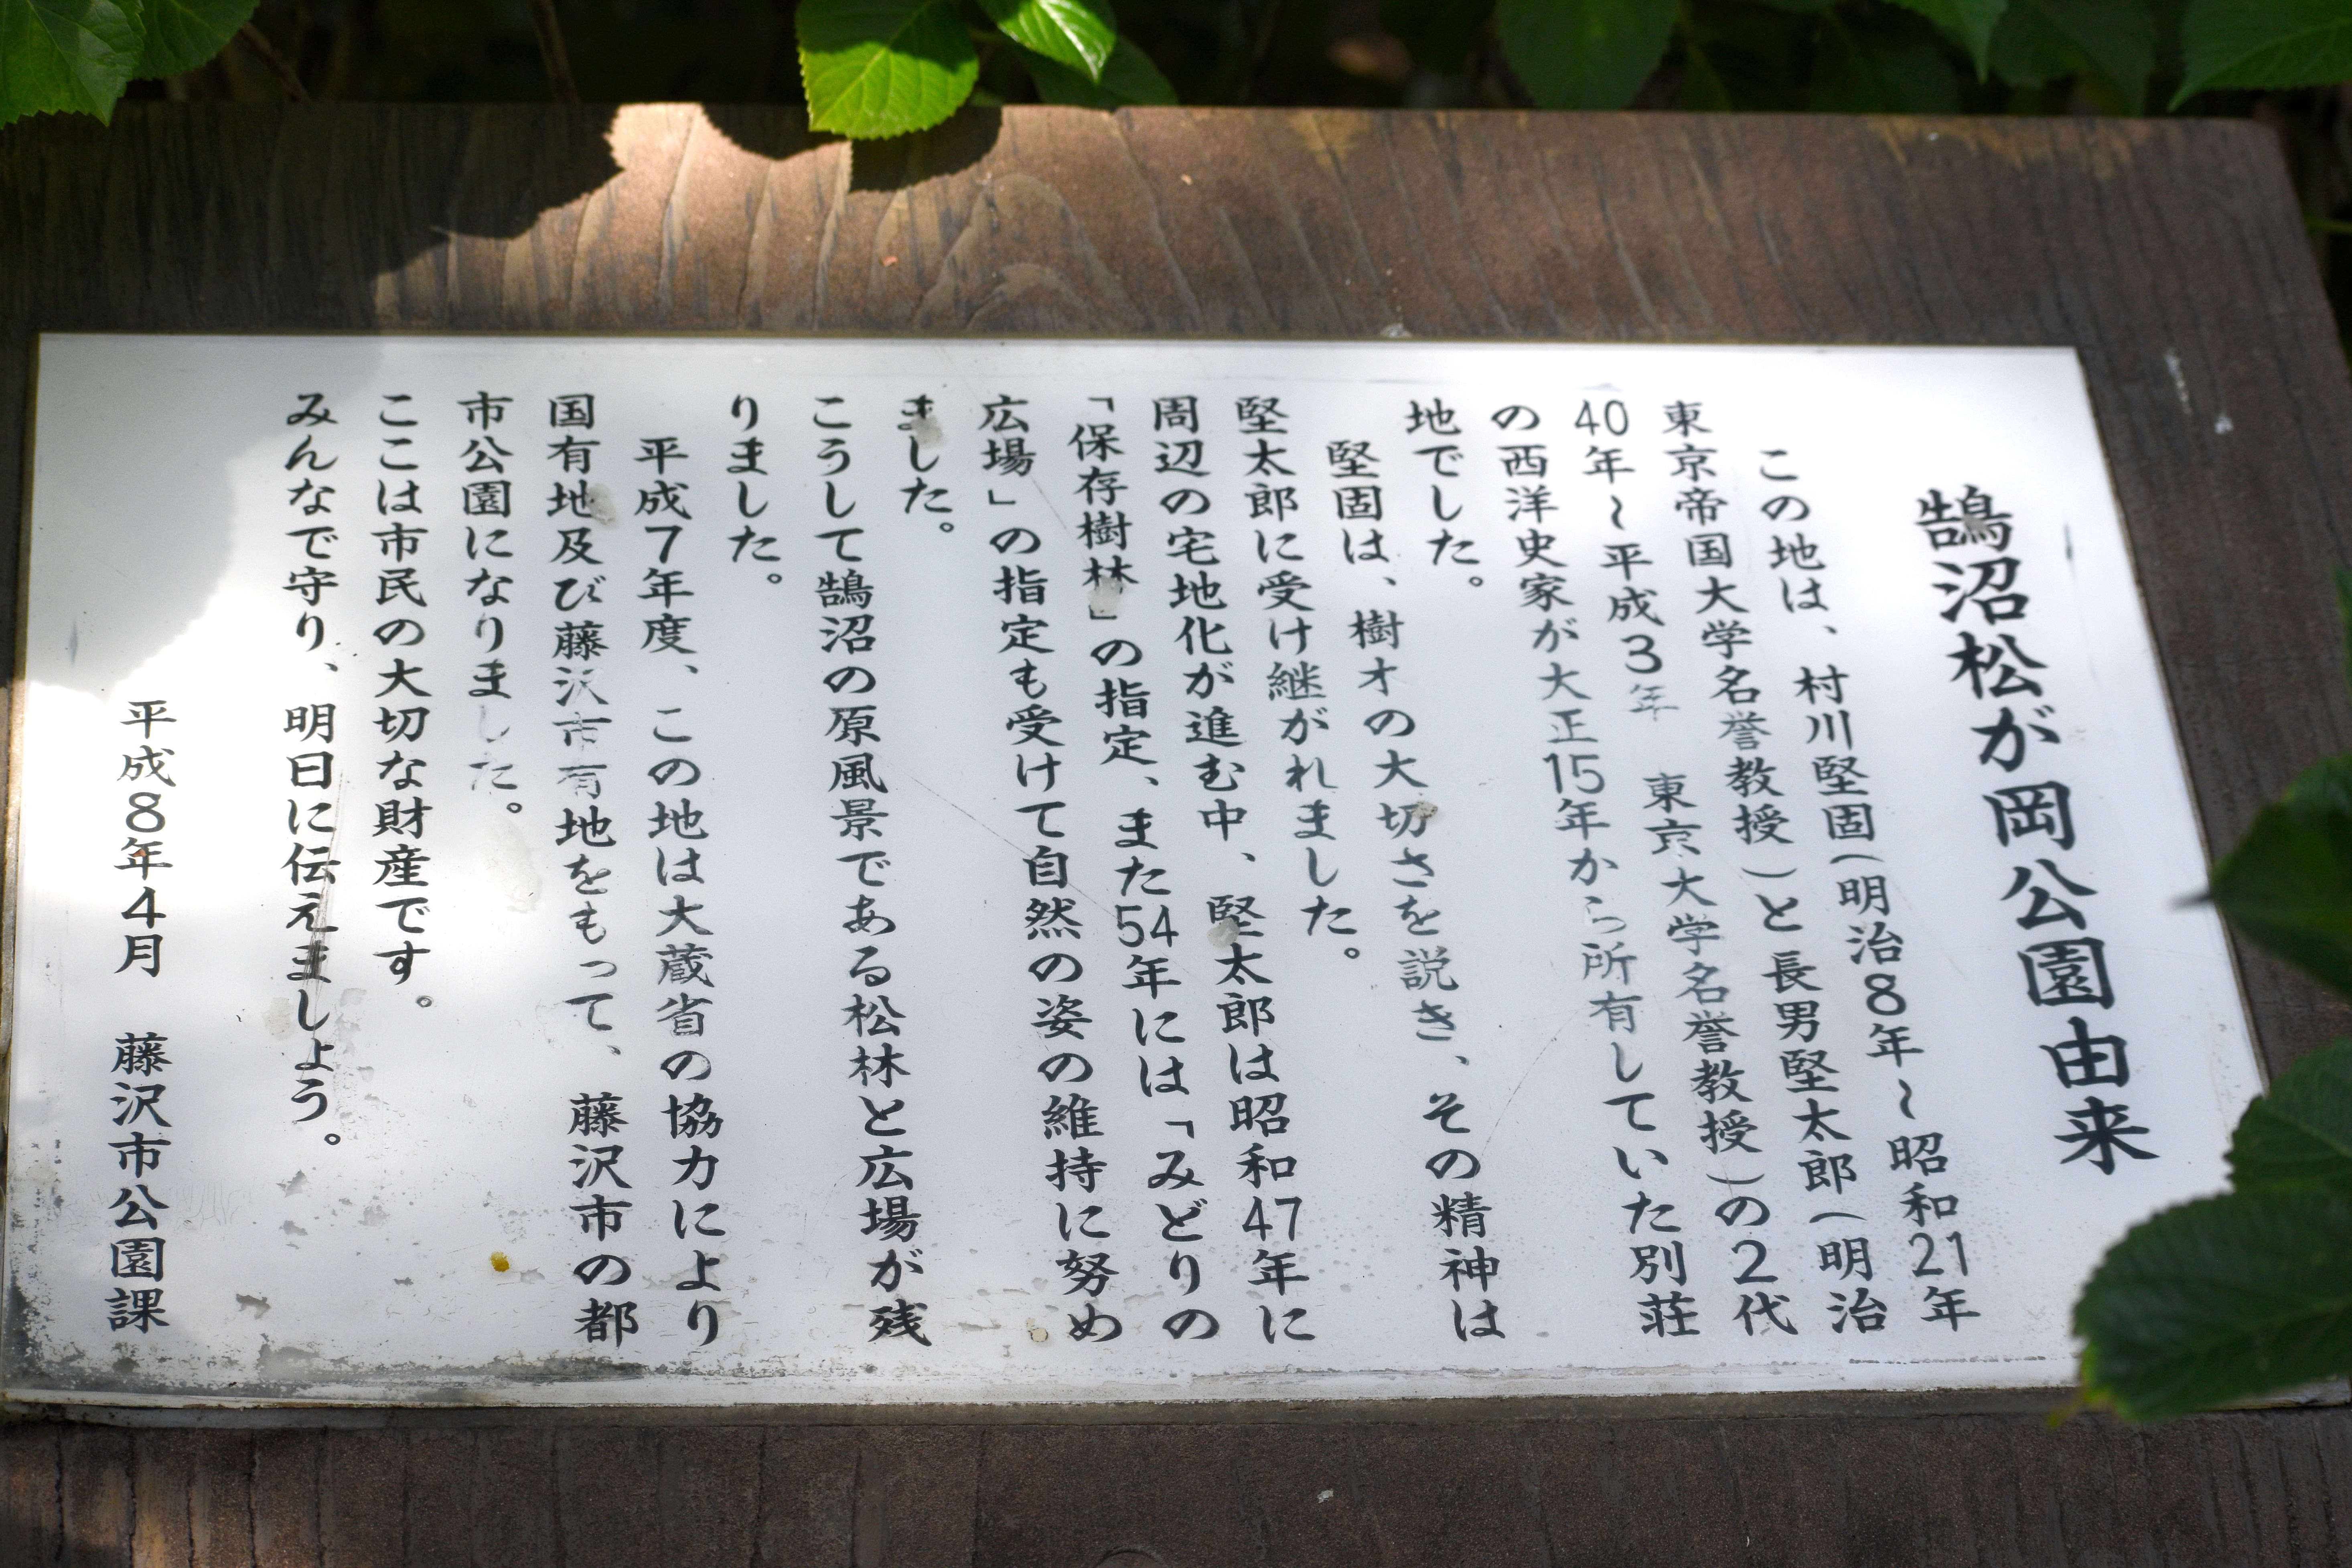 鵠沼松が岡公園由来
この地は、村川堅固(明治8年~昭和21年
東京帝国大学名誉教授)と長男堅太郎(明治
40年~平成3年 東京大学名誉教授)の2代
の西洋史家が大正15年から所有していた別荘
地でした。
堅固は、樹オの大切さを説き、その精神は
堅太郎に受け継がれました。
周辺の宅地化が進む中、堅太郎は昭和47年に
「保存樹林」の指定、また54年には「みどりの
広場」の指定も受けて自然の姿の維持に努め
ました。
こうして鵠沼の原風景である松林と広場が残
りました。
平成7年度、この地は大蔵省の協力により
国有地及び藤沢市有地をもって、藤沢市の都
市公園になりました。
ここは市民の大切な財産です。
みんなで守り、明日に伝えましょう。
平成8年4月 藤沢市公園課